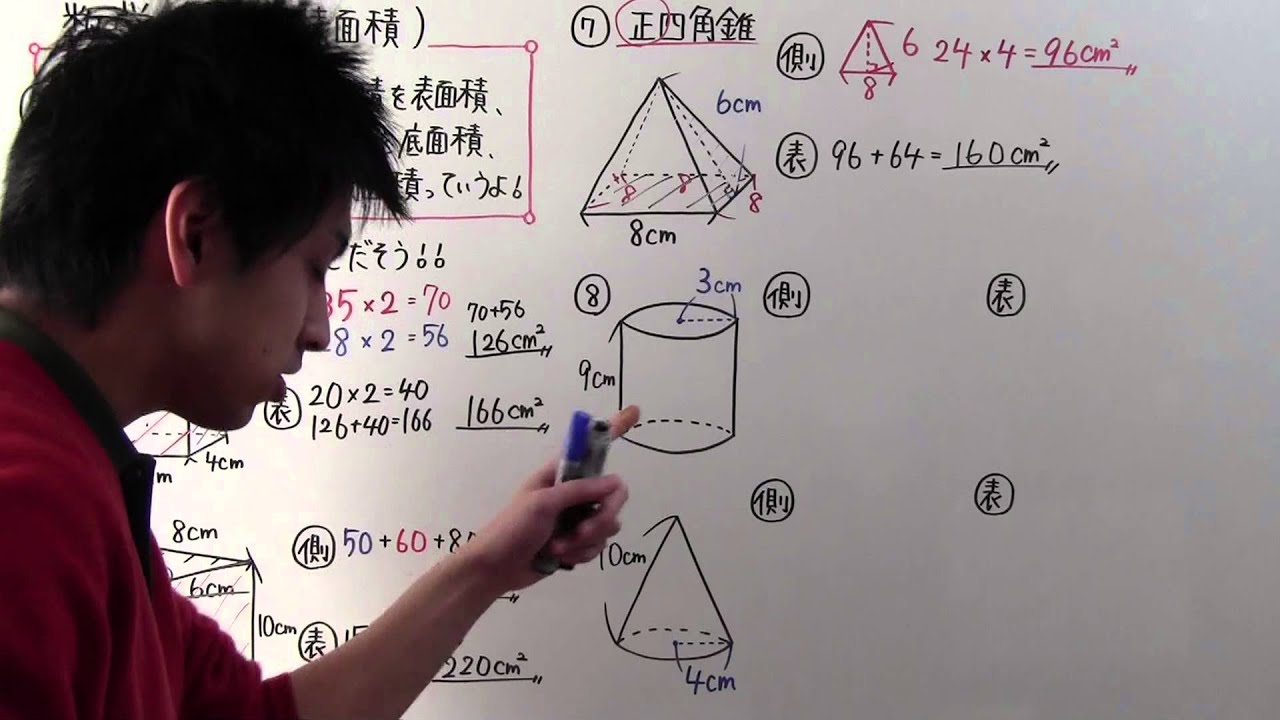 面積）
を表面積、
底面積、
積っていうよ！
だそう！！
35×2=70
28×2=56
70+56
126cm²
表 20×2=40
126+40=166
166cm²
4cm
8cm
6cm
10cm
側 50+60+8
表 15
220cm²
⑦ 正四角錐
6cm
8
8
8
8cm
側 6 8 24×4=96cm²
表 96+64=160cm²
⑧ 3cm
9cm
側 表
10cm
4cm
側 表